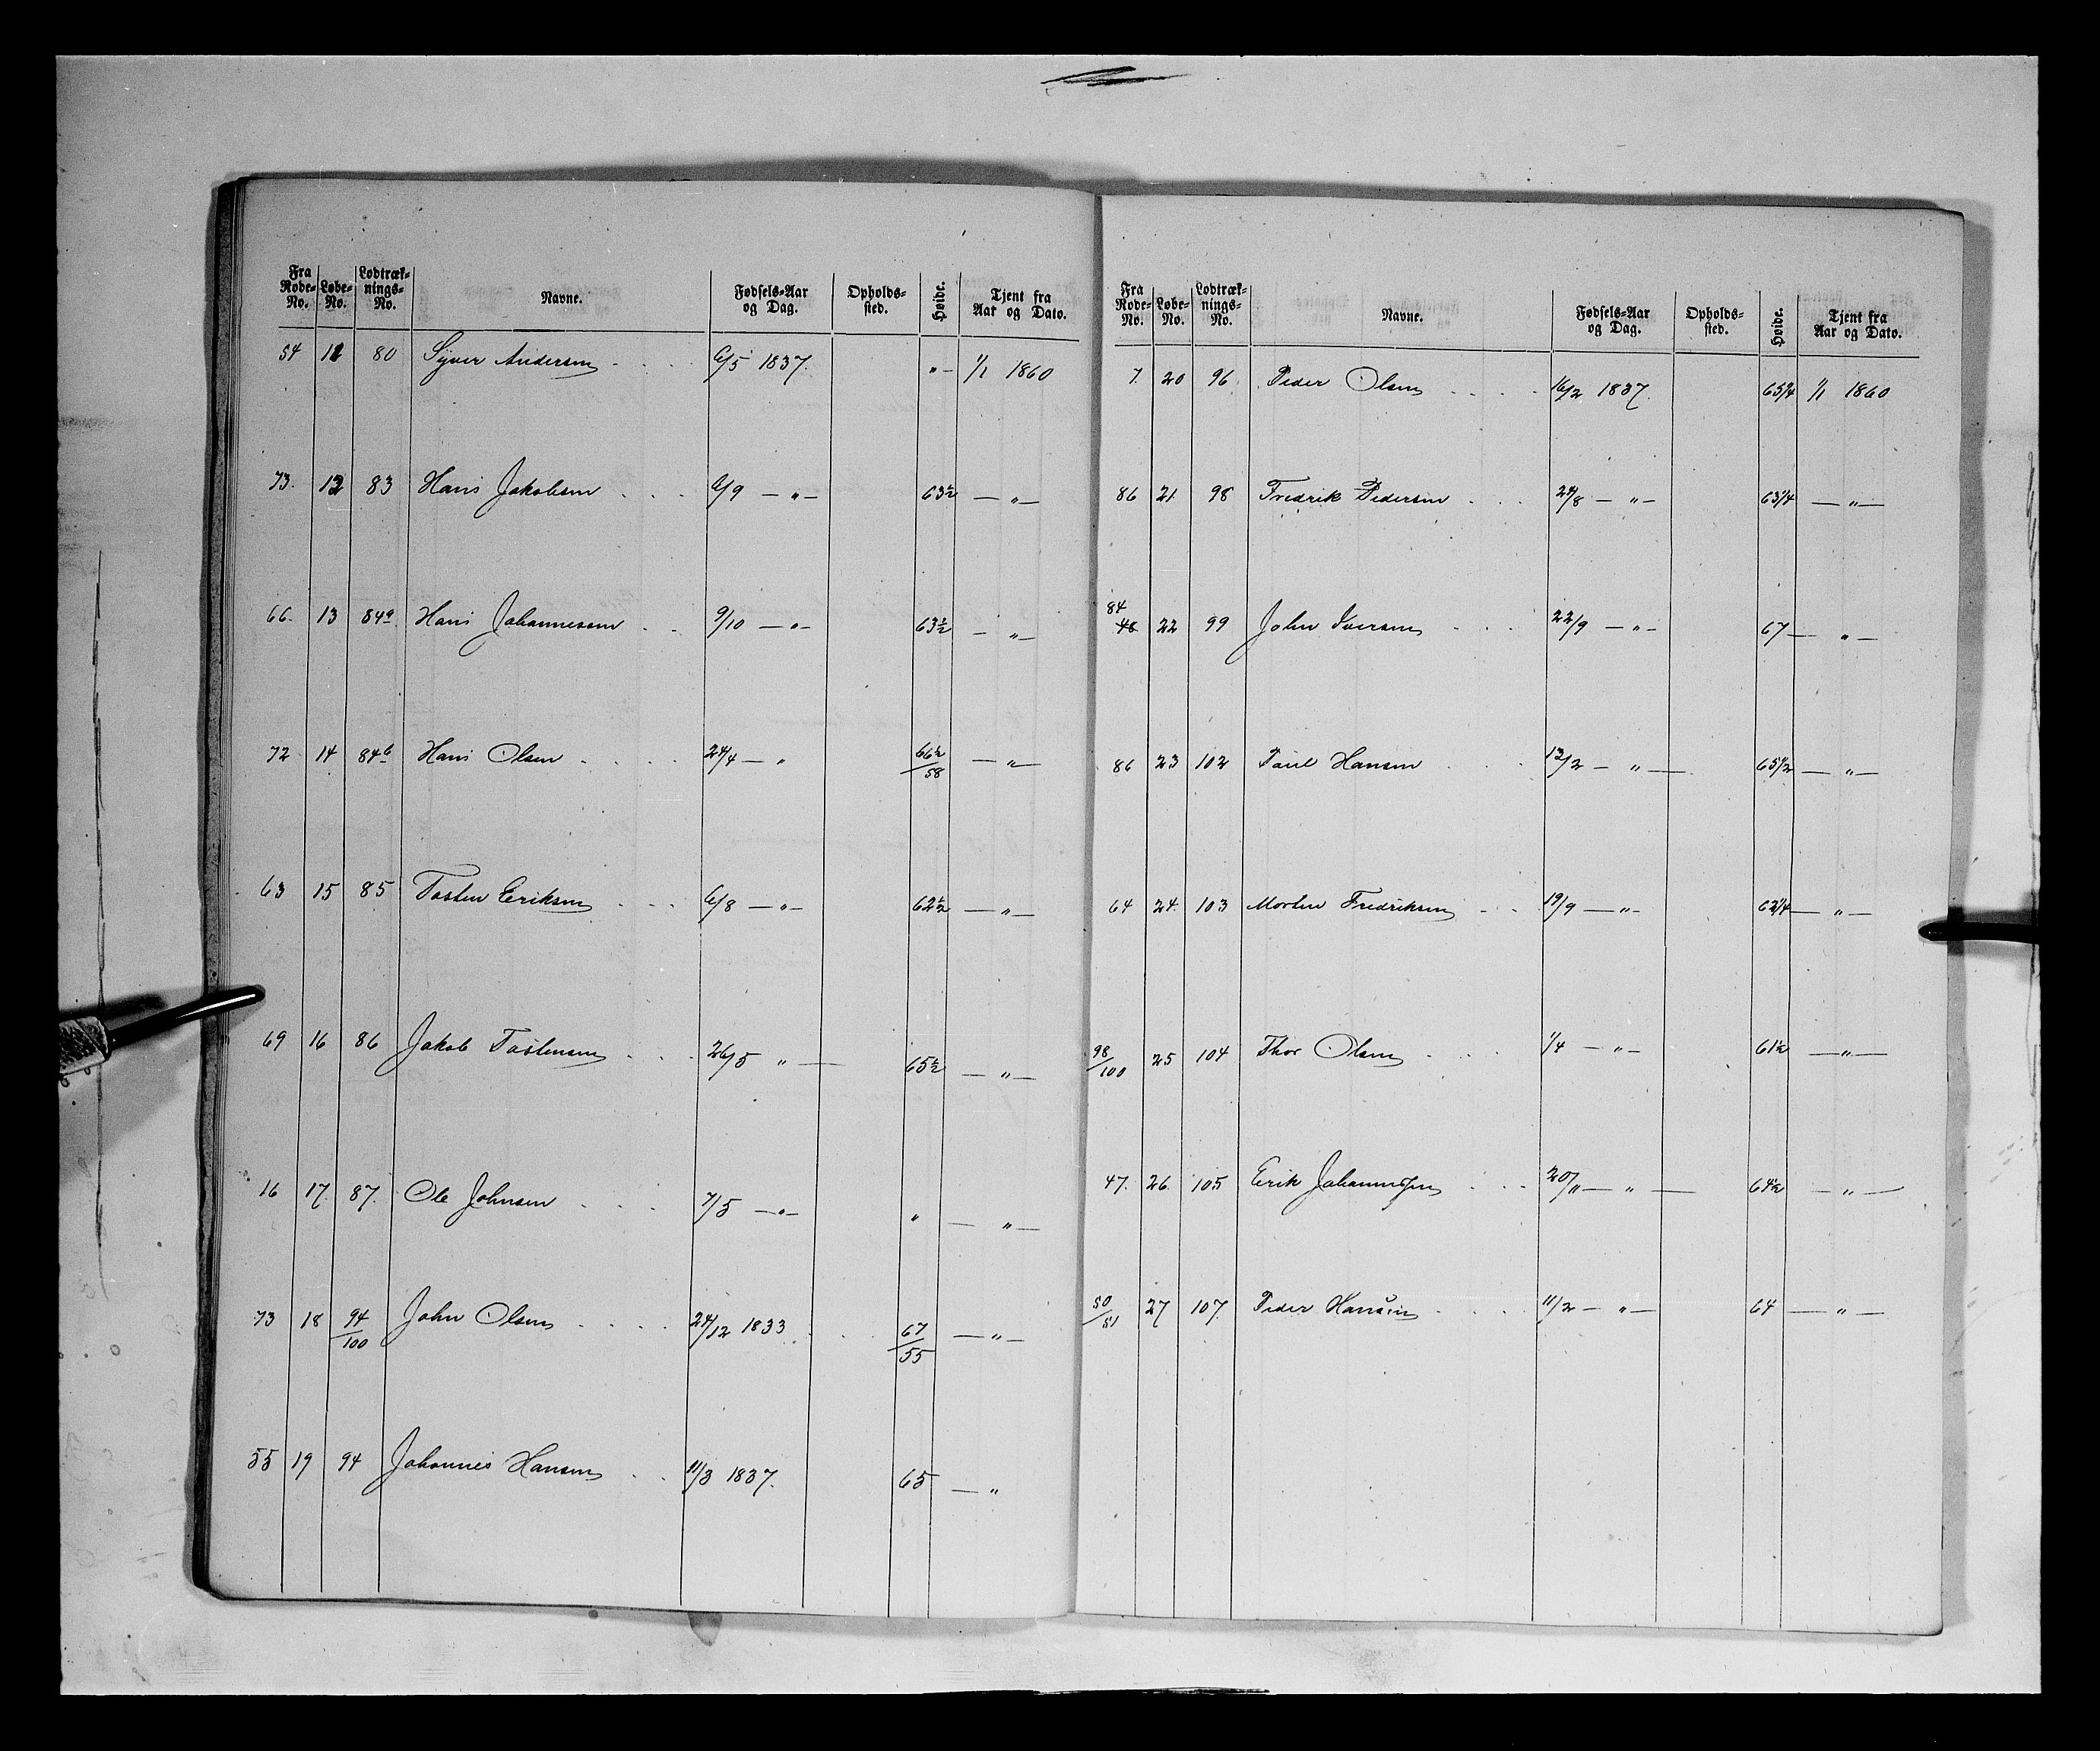 Fra Rode-No. Løbe-No. Lodtræk-nings-No. Navne. Fødsels-Aar og Dag. Opholds-sted. Høide. Tjent fra Aar og Dato.
54 11 80 Syver Andersen 6/5 1837. " 1/1 1860
73. 12 83 Hans Jakobsen 6/9 — " — 63½ — " —
66. 13 84a Hans Johannessen 9/10 — " — 63½ — " —
72 14 84b Hans Olsen 24/4 — " 66½/58 — " —
63 15 85 Tosten Eriksen 6/8 — " — 62½ — " —
69 16 86 Jakob Tostensen 26/5 " — 65½ — " —
16 17. 87. Ole Johnsen 7/5 — " — " — " —
73 18 94/100 John Olsen 24/12 1833 67/55 — " —
55 19 94 Johannes Hansen 11/3 1837. 65 — "
Fra Rode-No. Løbe-No. Lodtræk-nings-No. Navne. Fødsels-Aar og Dag. Opholds-sted. Høide. Tjent fra Aar og Dato.
7. 20 96 Peder Olsen 16/2 1837. 65¾ 1/1 1860
86 21 98 Fredrik Pedersen 24/8 — " — 63¼ — " —
84
48 22 99 John Iversen 22/9 — " — 67 — " —
86 23 102 Paul Hansen 13/2 — " — 65½ — " —
64 24. 103 Morten Fredriksen 19/9 — " — 62¼ — " —
98/100 25 104 Thor Olsen 1/4 — " — 61½ — " —
47. 26. 105 Erik Johannessen 20/11 — " — 64½ — " —
50/51 27 107. Peder Hansen 11/2 — " — 64 — " —